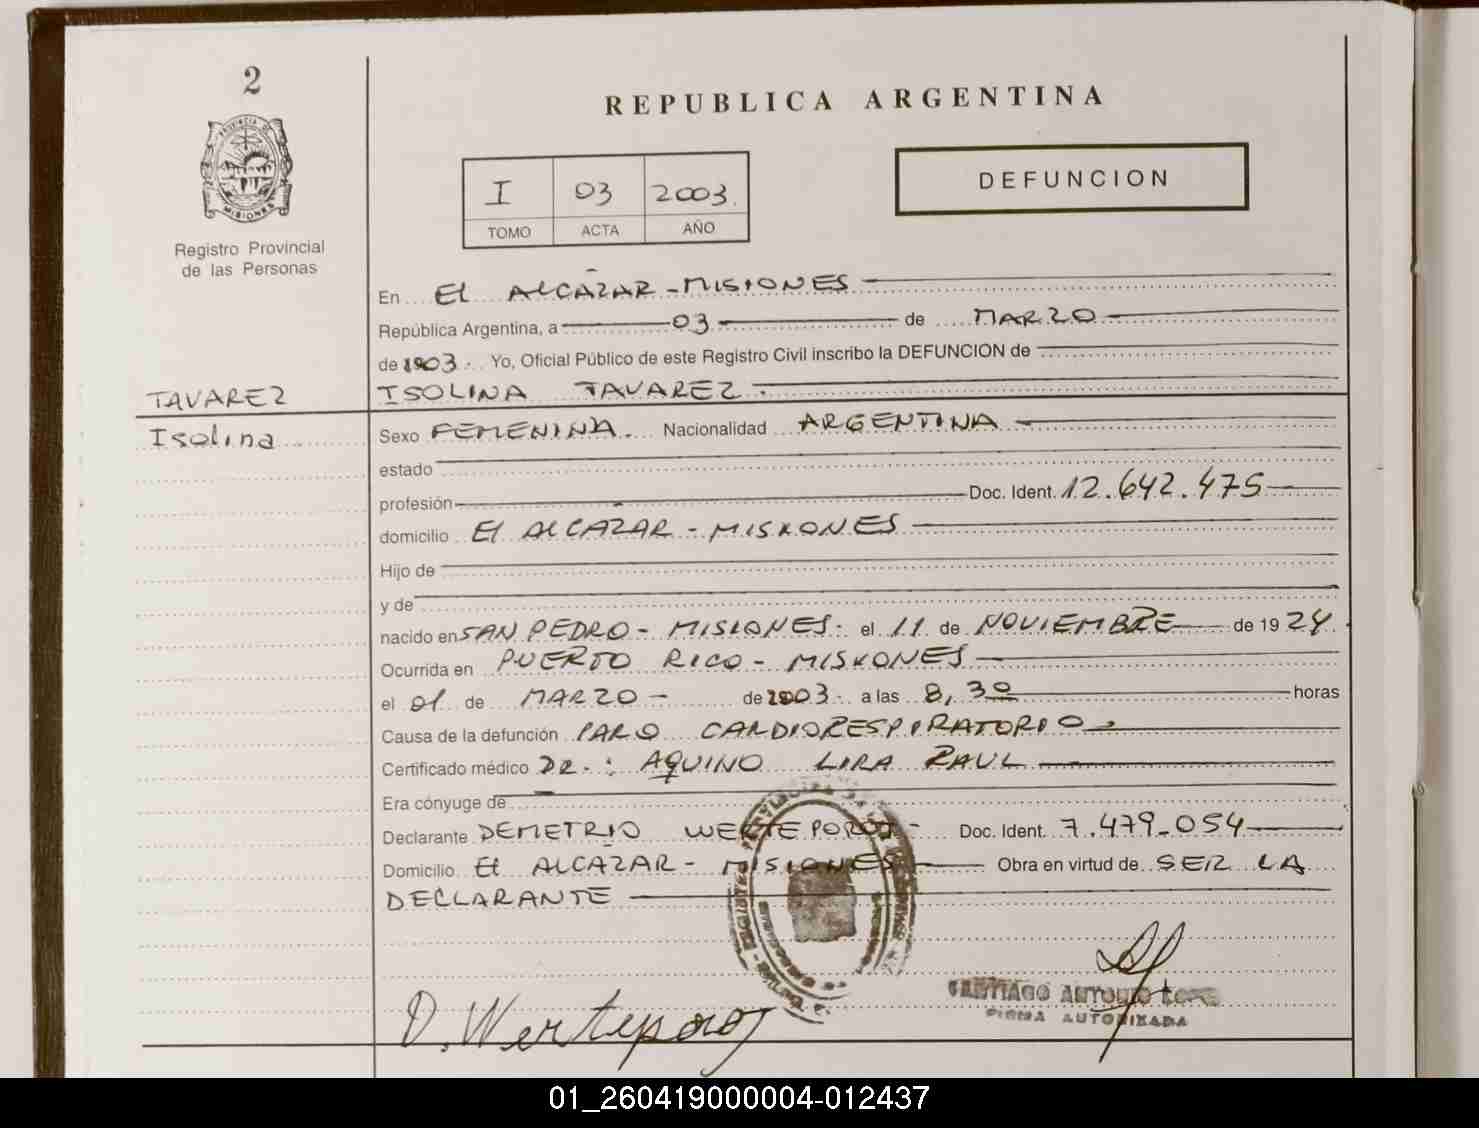 2
REPUBLICA ARGENTINA
I 03 2003.
TOMO ACTA AÑO
DEFUNCION
PROVINCIA DE
MISIONES
Registro Provincial
de las Personas
En El ALCÁZAR - MISIONES
República Argentina, a 03 de MARZO
de 2003. Yo, Oficial Público de este Registro Civil inscribo la DEFUNCION de
TAVAREZ
ISOLINA TAVAREZ.
Isolina
Sexo FEMENINA. Nacionalidad ARGENTINA
estado
profesión Doc. Ident. 12.642.475
domicilio El ALCÁZAR - MISIONES
Hijo de
y de
nacido en SAN PEDRO - MISIONES. el 11 de NOVIEMBRE de 19 24.
Ocurrida en PUERTO RICO - MISIONES
el 01 de MARZO - de 2003. a las 8,30 horas
Causa de la defunción PARO CARDIORESPIRATORIO
Certificado médico DR. : AQUINO LIRA RAUL
Era cónyuge de
Declarante DEMETRIO Doc. Ident. 7.479.054
Domicilio El ALCAZAR - MISIONES Obra en virtud de SER LA
DECLARANTE
SANTIAGO ANTONIO
FIRMA AUTORIZADA
01_260419000004-012437